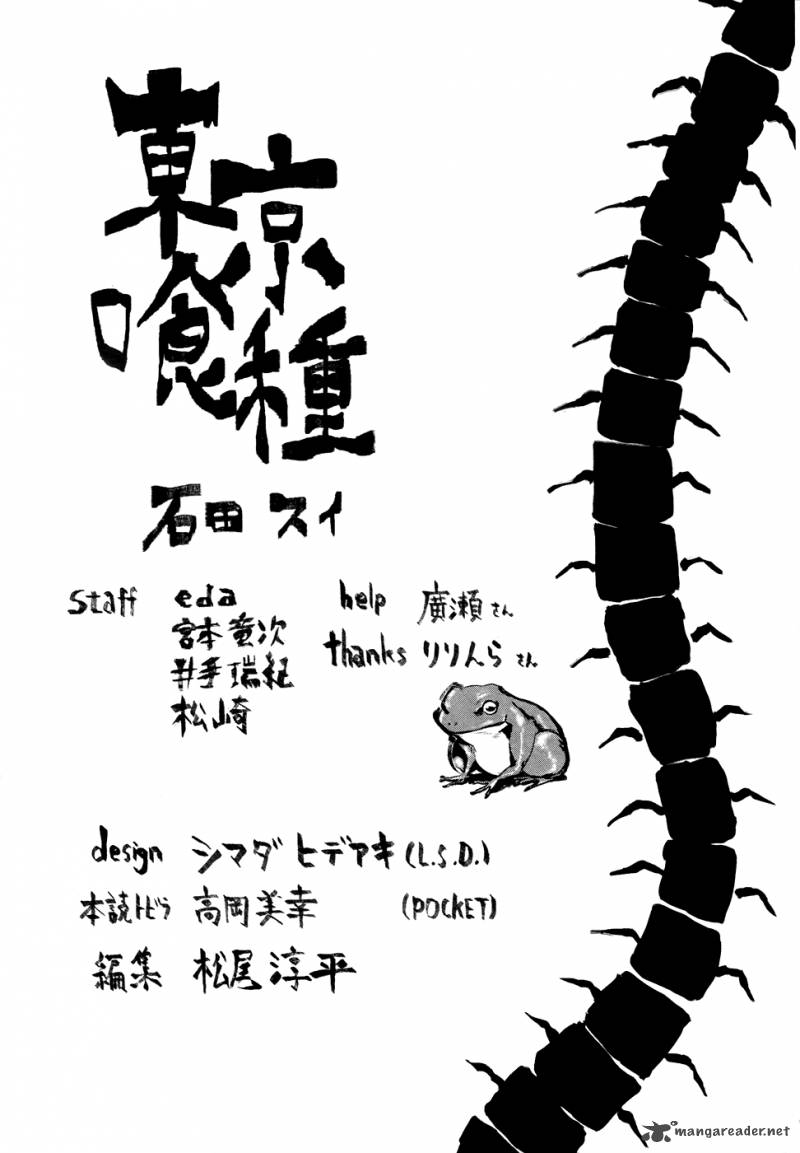 東京
喰種
石田スイ
staff eda
宮本竜次
井手瑞紀
松崎
help 廣瀬さん
thanks りりんらさん
design シマダヒデアキ(L.S.D.)
本読トビラ 高岡美幸 (POCKET)
編集 松尾淳平
mangareader.net